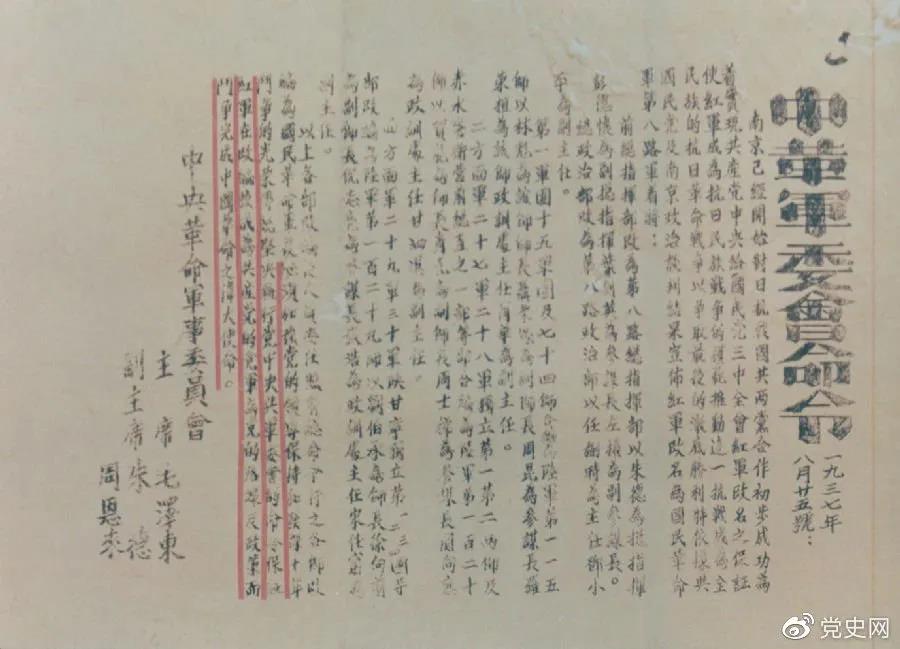 中革軍委會命令
一九三七年
八月廿五號：
南京已經開始對日抗戰國共兩黨合作初步成功為
着實現共産党中央給國民党三中全會紅軍改名之保証
使紅軍成為抗日民族戰爭的模範推動這一抗戰成為全
民族的抗日革命戰爭以爭取最後的澈底勝利特依據與
國民党及南京政治談判結果宣佈紅軍改名為國民革命
軍第八路軍着將：
前總指揮部改為第八路總指揮部以朱德為總指揮
彭德懷為副總指揮葉劍英為參謀長左權為副參謀長。
總政治部改為第八路政治部以任弼時為主任鄧小
平為副主任。
第一軍團十五軍團及七十四師合編為陸軍第一一五
師以林彪為該師師長聶榮臻為副師長周昆為參謀長羅
榮桓為該師政訓處主任蕭華為副主任。
二方面軍二十七軍二十八軍獨立第一第二兩師及
赤水警衛營前總直之一部等部合編為陸軍第一百二十
師以賀龍為師長蕭克為副師長周士第為參謀長関向應
為政訓處主任甘泗淇為副主任。
四方面軍二十九軍三十軍陝甘寧獨立第一二三四等
部改編為陸軍第一百二十九師以劉伯承為師長徐向前
為副師長倪志亮為參謀長張浩為政訓處主任宋任窮為
副主任。
以上各部改編後人員委任照前總命令行之各部改
編為國民革命軍後必須加強党的領導保持和發揮十年
鬥爭的光榮傳統堅決執行党中央與軍委會的命令保証
紅軍在改編後成為共産党的党軍為党的路線及政策而
鬥爭完成中國革命之偉大使命。
中央革命軍事委員會
主席毛澤東
副主席朱德
周恩来
党史网